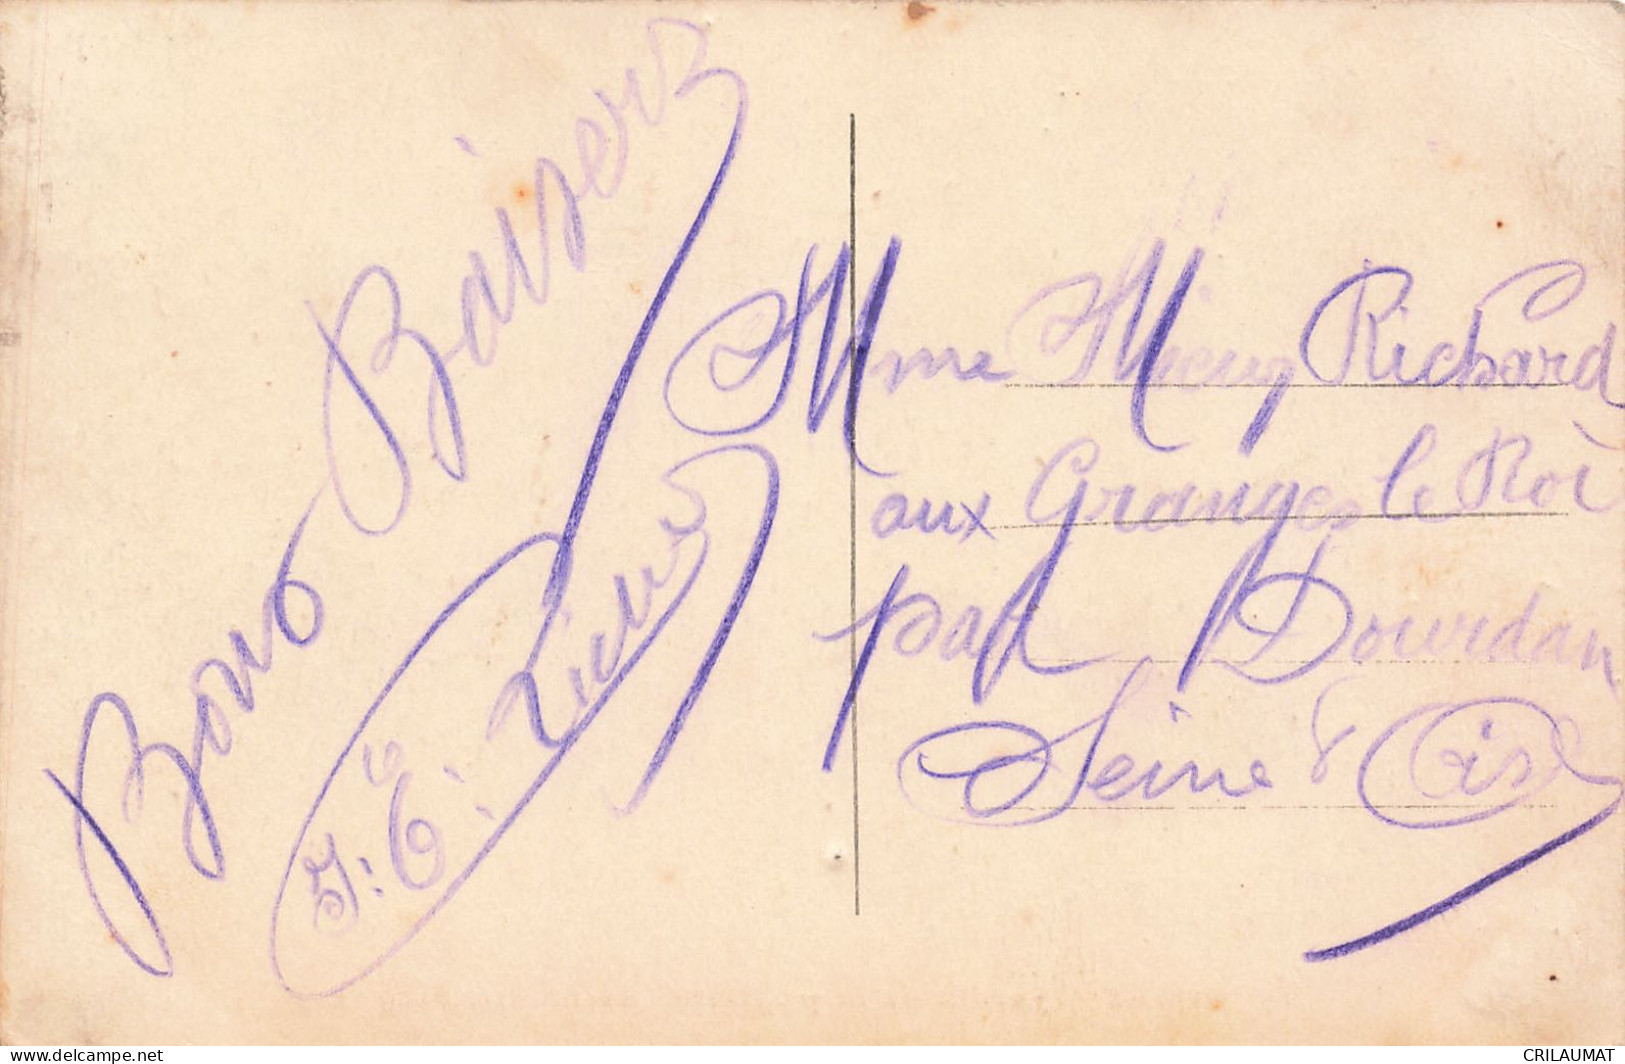 Bons Baisers
Mme Richard
aux Granges le Roi
par Dourdan
Seine & Oise
www.delcampe.net
CRILAUMAT